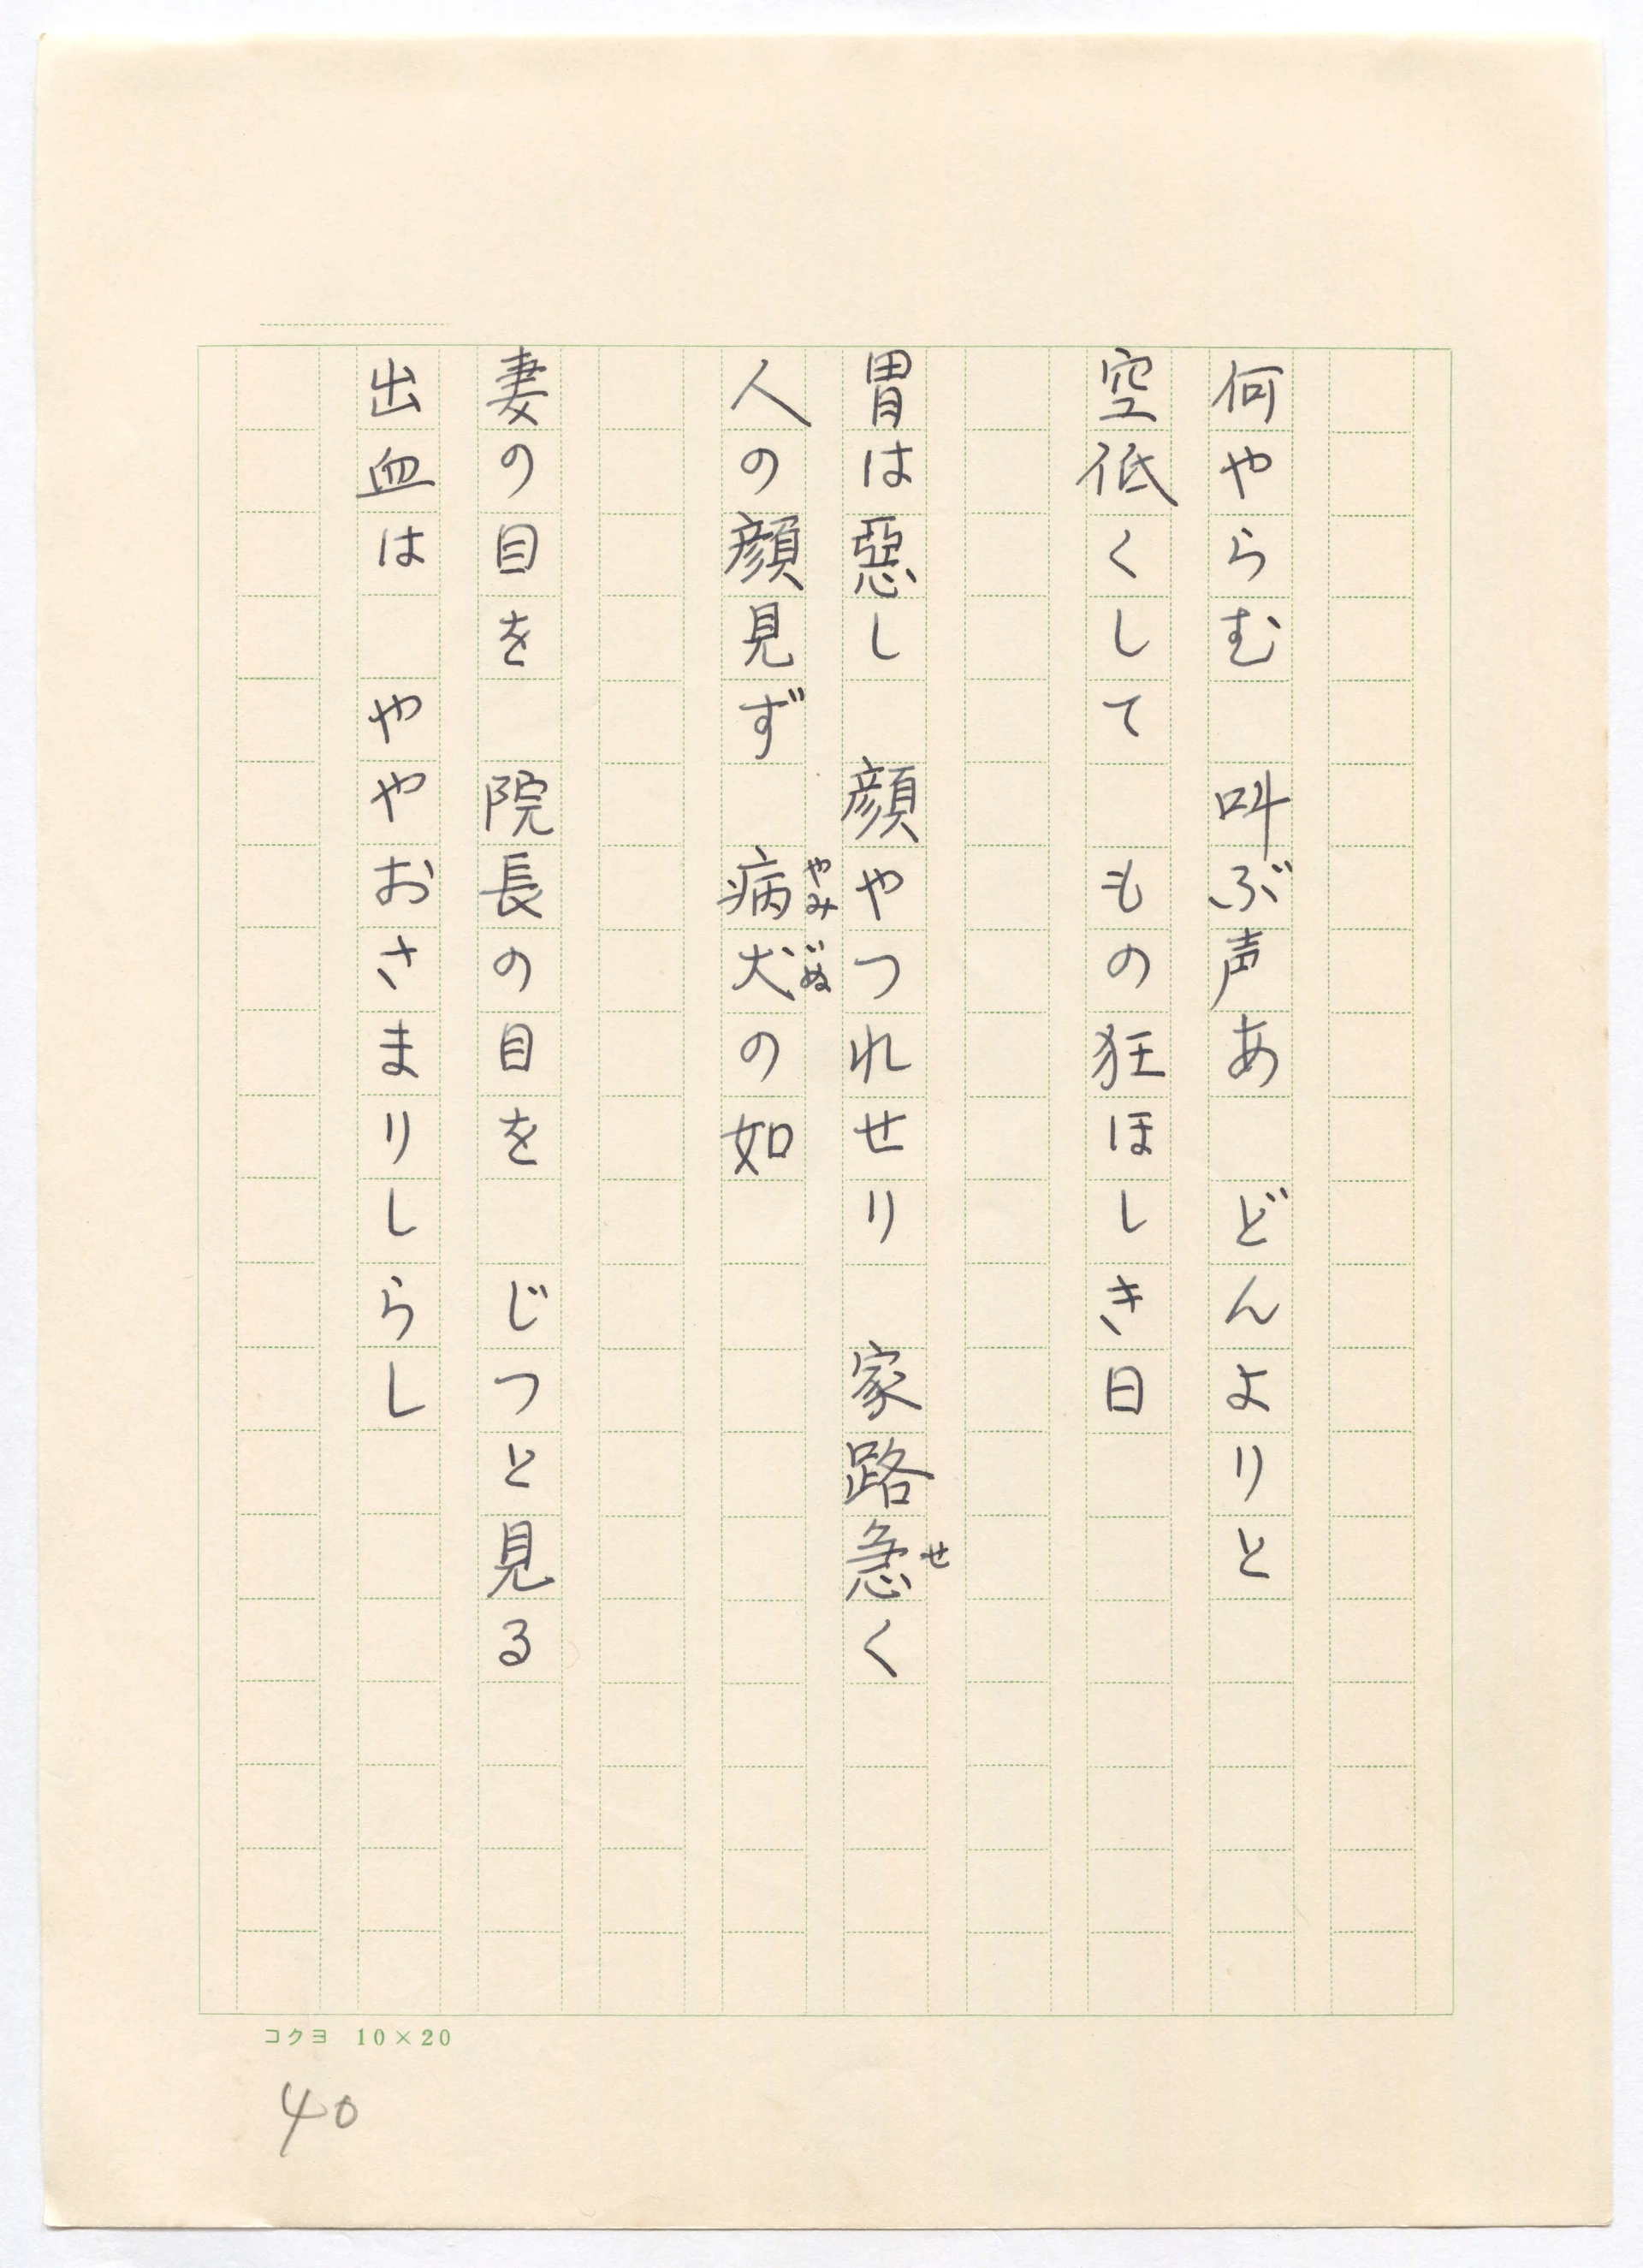 何やらむ　叫ぶ声あ　どんよりと
空低くして　もの狂ほしき日
胃は惡し　顔やつれせり　家路急く
せ
人の顔見ず　病犬の如
やみいぬ
妻の目を　院長の目を　じつと見る
出血は　ややおさまりしらし
コクヨ 10×20
40